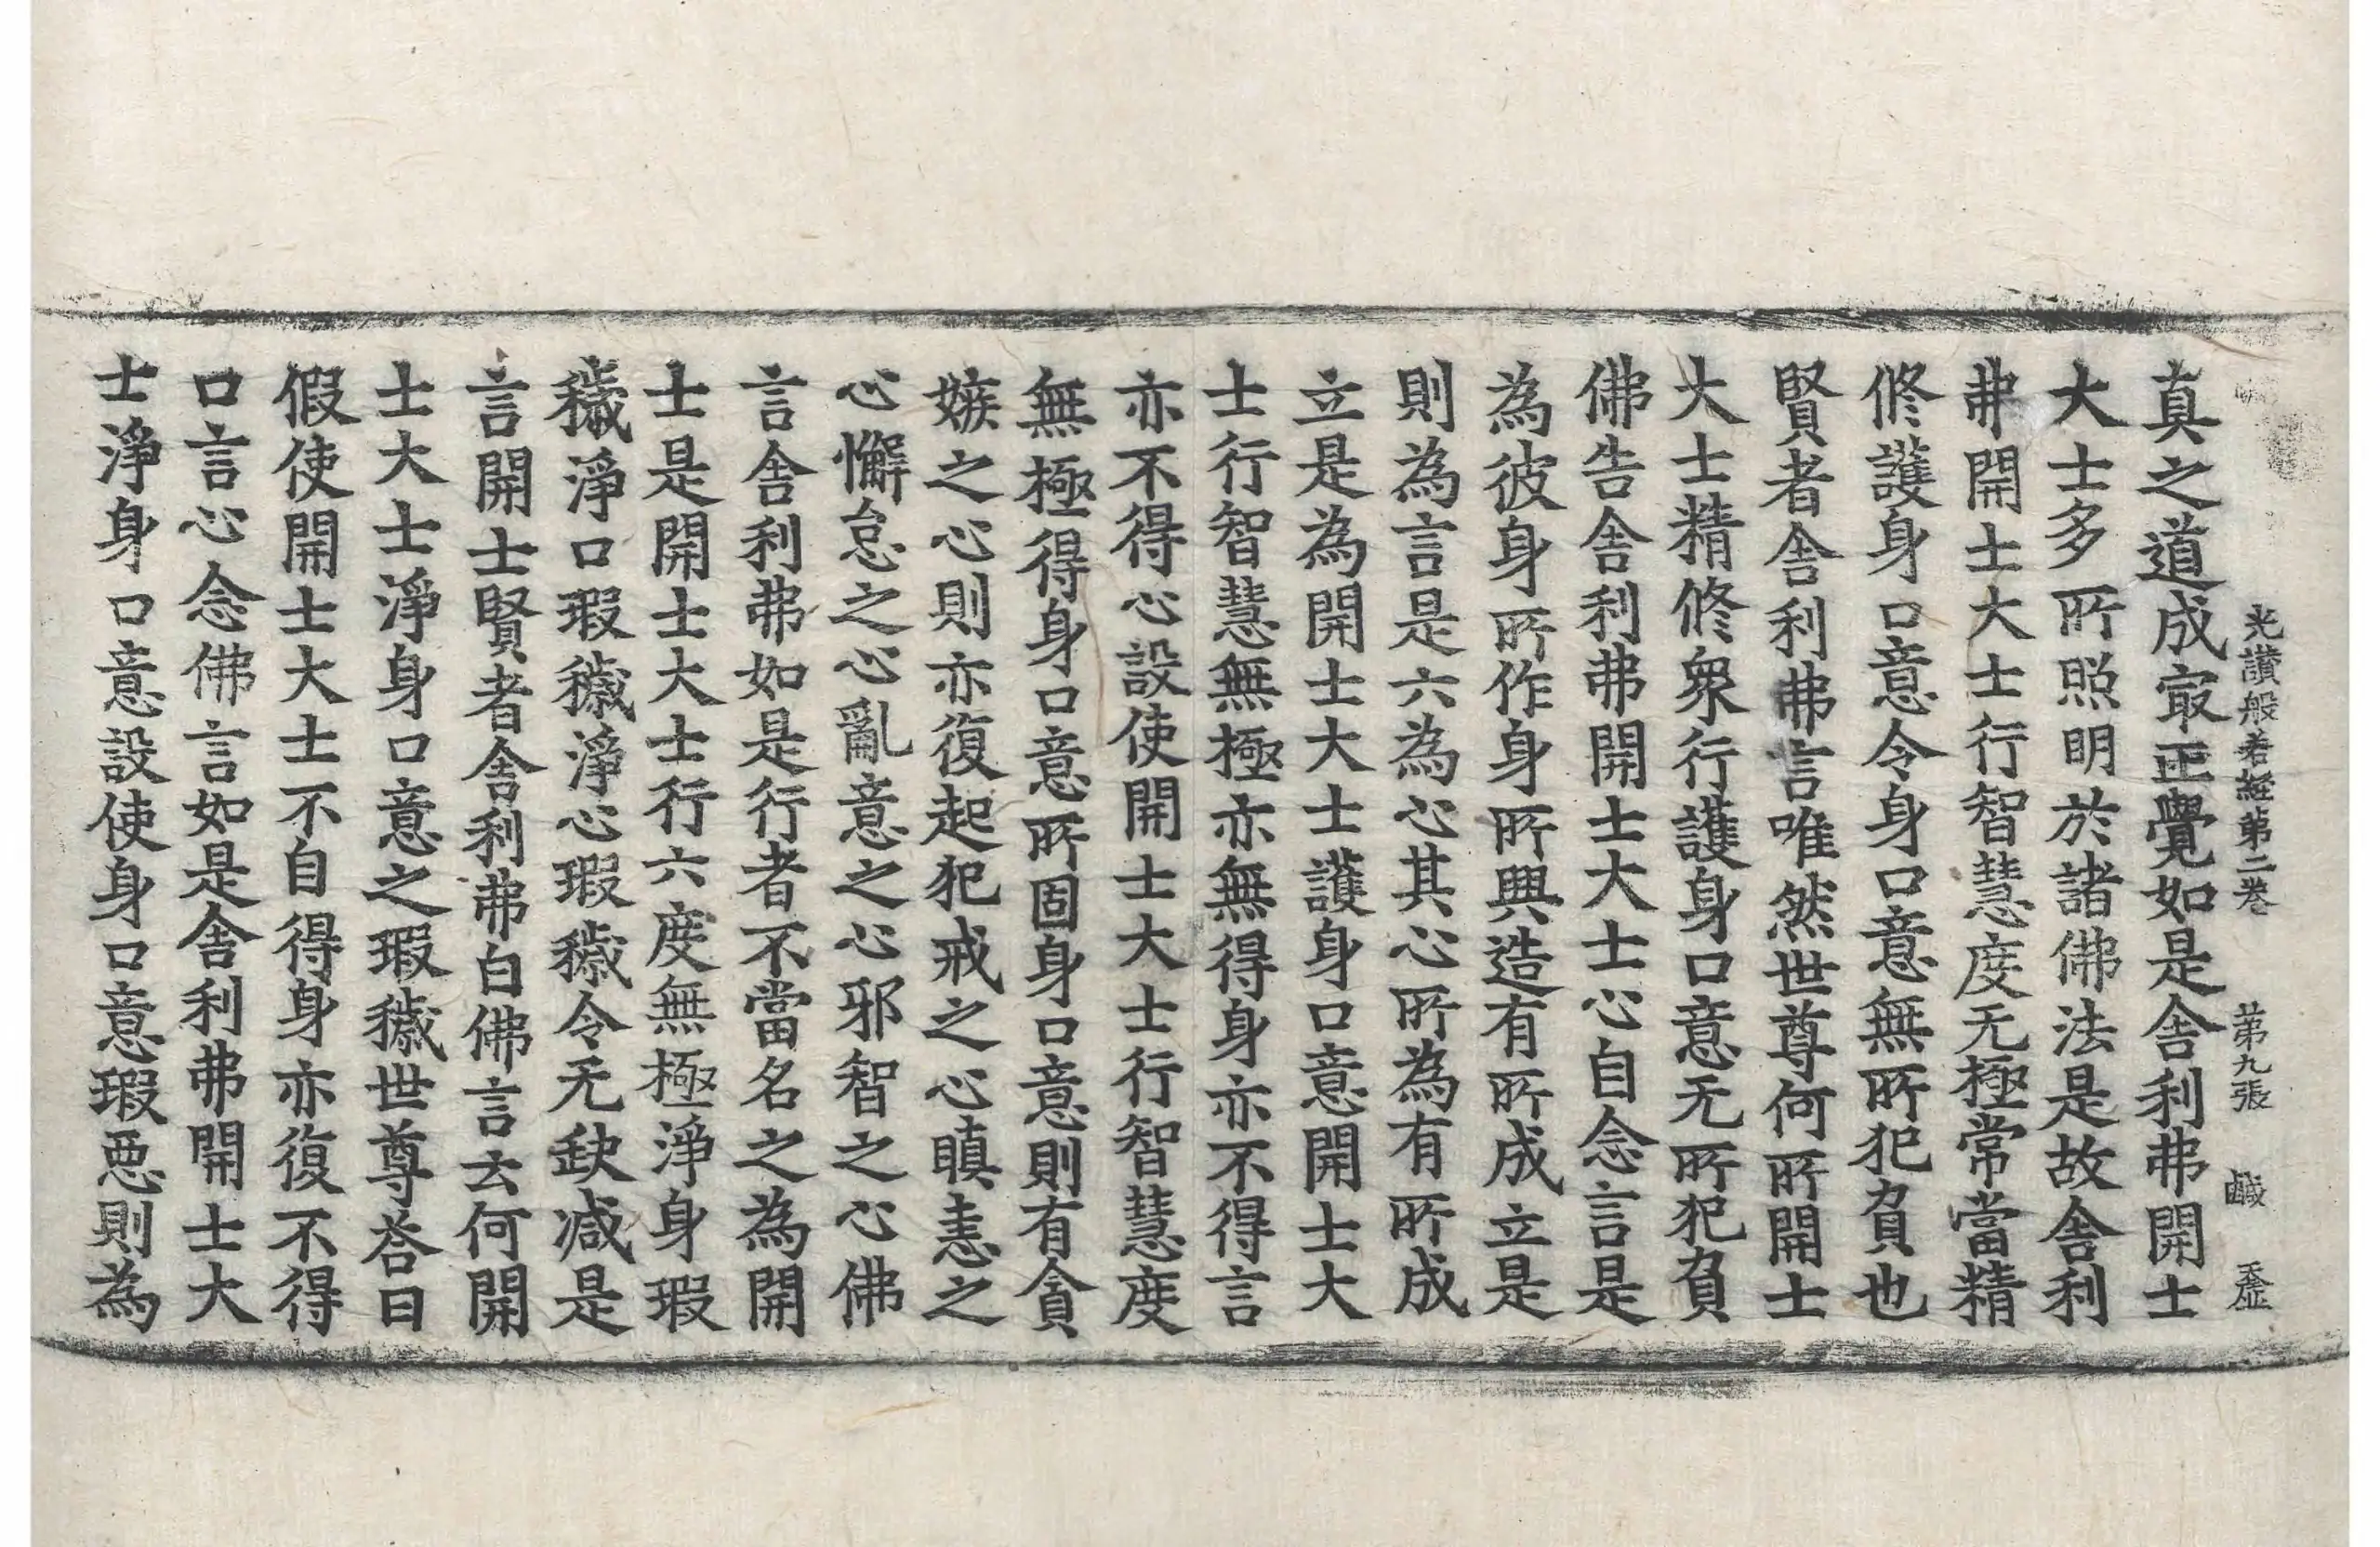 光讃般若經第二卷 第九張 鹹 玉
真之道成㝡正覺如是舎利弗開士
大士多所照明於諸佛法是故舎利
弗開士大士行智慧度无極常當精
修護身口意令身口意無所犯負也
賢者舎利弗言唯然世尊何所開士
大士精修衆行護身口意无所犯負
佛告舎利弗開士大士心自念言是
為彼身所作身所興造有所成立是
則為言是六為心其心所為有所成
立是為開士大士護身口意開士大
士行智慧無極亦無得身亦不得言
亦不得心設使開士大士行智慧度
無極得身口意所固身口意則有貪
嫉之心則亦復起犯戒之心瞋恚之
心懈怠之心亂意之心邪智之心佛
言舎利弗如是行者不當名之為開
士是開士大士行六度無極淨身瑕
穢淨口瑕穢淨心瑕穢令无缺减是
言開士賢者舎利弗白佛言云何開
士大士淨身口意之瑕穢世尊荅曰
假使開士大士不自得身亦復不得
口言心念佛言如是舎利弗開士大
士淨身口意設使身口意瑕惡則為